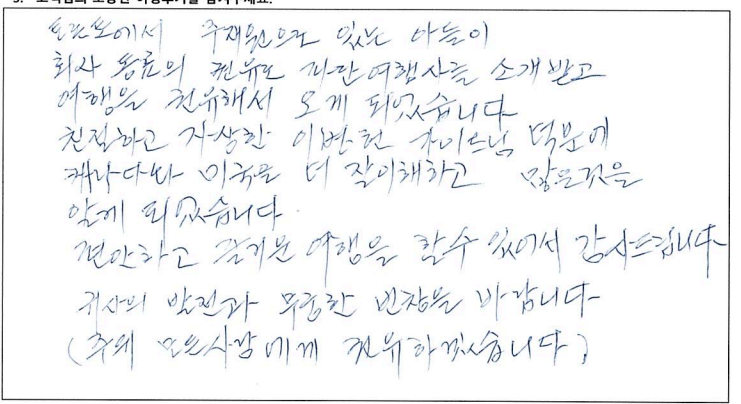 토론토에서 주재원으로 있는 아들이
회사 동료의 권유로 여행사를 소개 받고
여행을 권유해서 오게 되었습니다
친절하고 자상한 이번헌 가이드님 덕분에
캐나다와 미국을 더 잘이해하고 많은것을
알게 되었습니다
편안하고 즐거운 여행을 할수 있어서 감사드립니다
귀사의 발전과 무궁한 번창을 바랍니다
(주위 모든사람에게 권유하겠습니다)